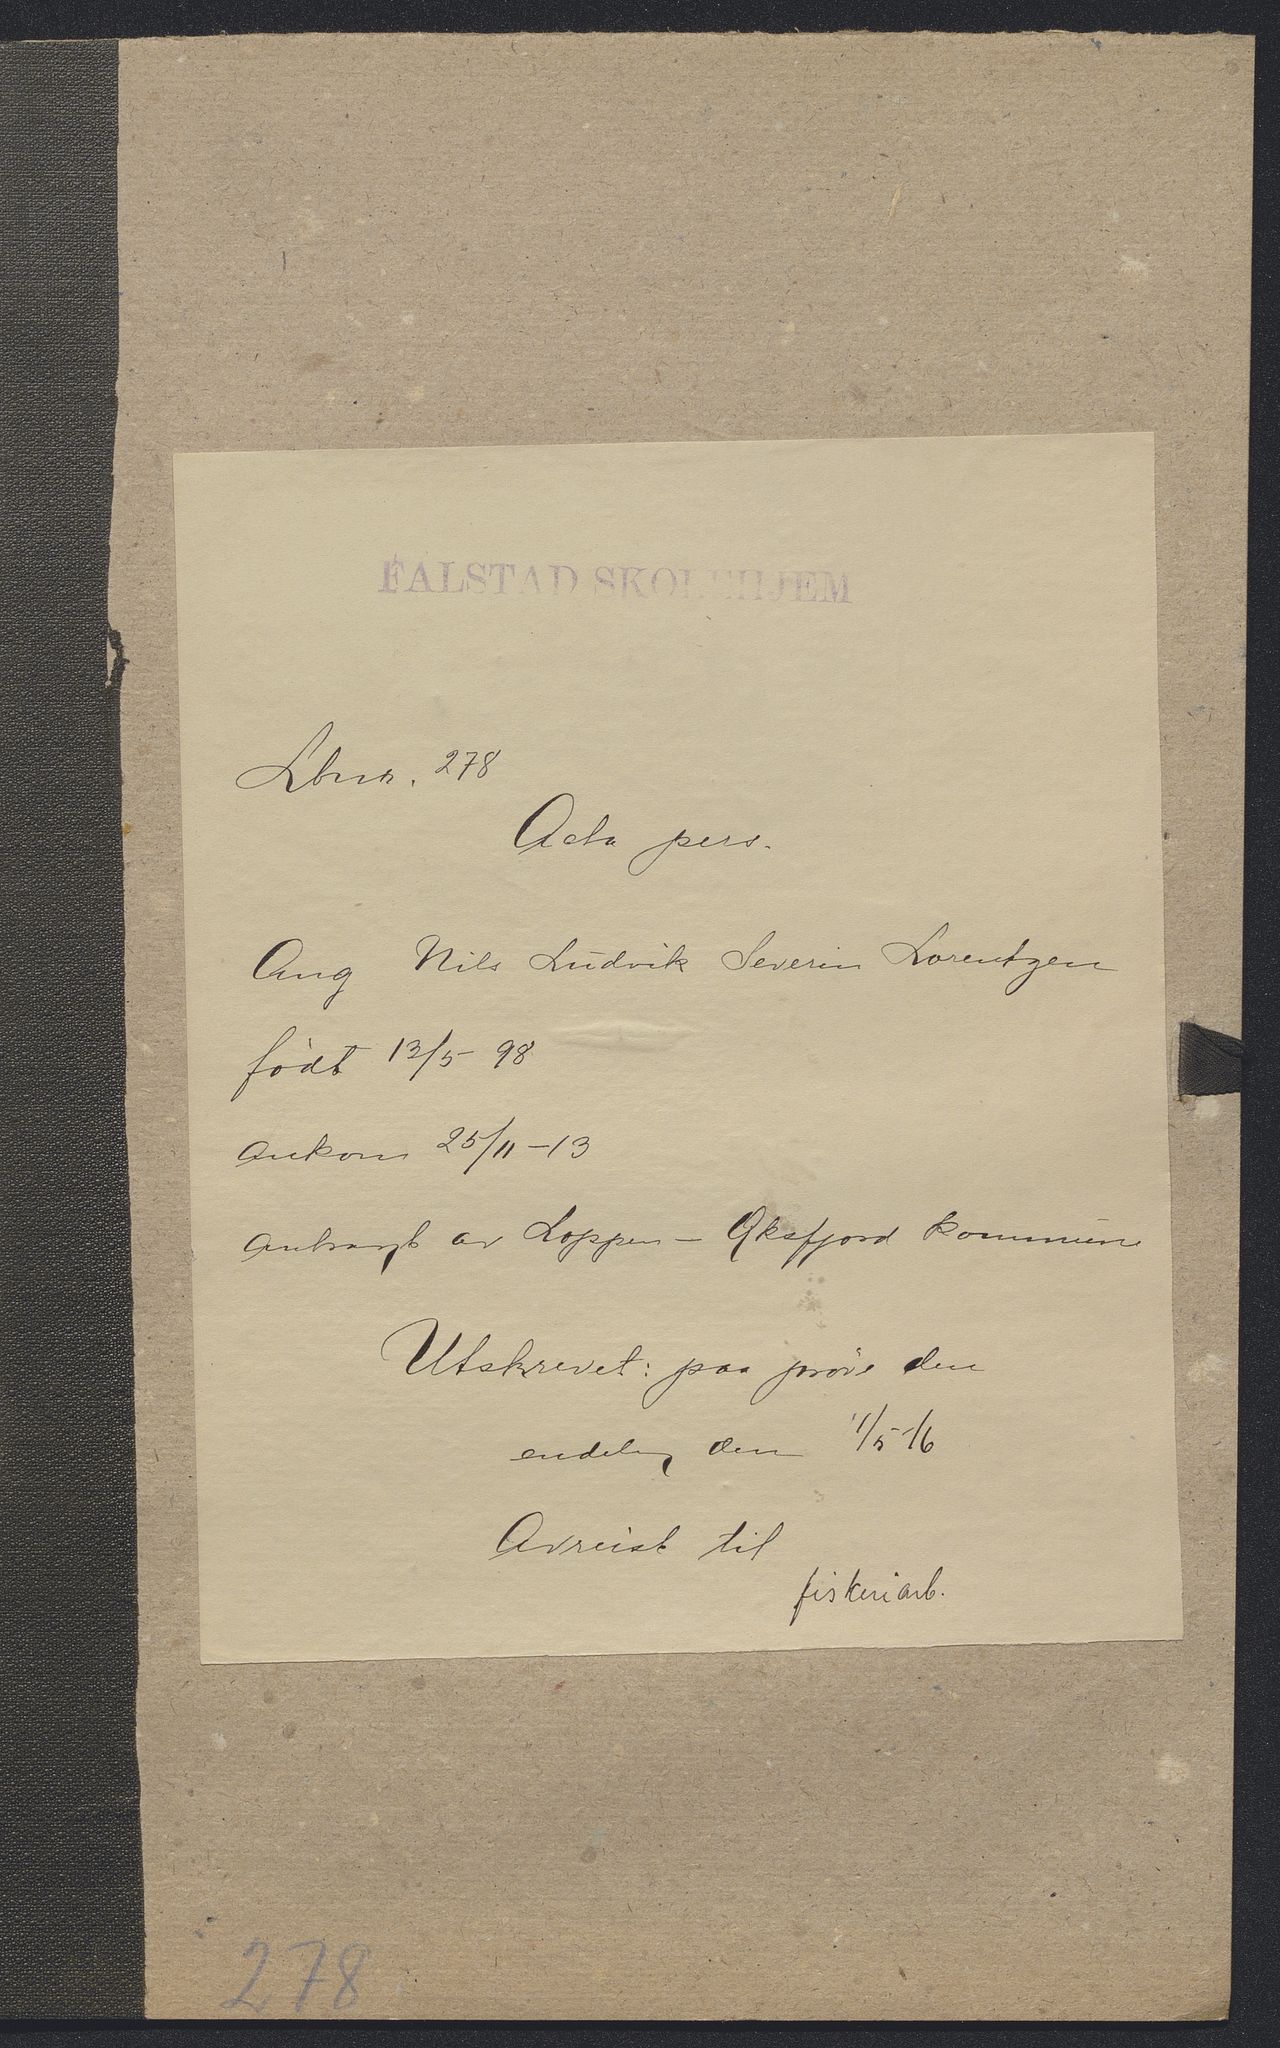 FALSTAD SKOLEHJEM
Lbnr. 278
Acta pers.
Ang Nils Ludvik Severin Lorentzen
født 13/5 98
ankom 25/11-13
anbragt av Loppen - Øksfjord kommune
Utskrevet: paa prøve den
endelig den 1/5-16
Avreist til
fiskeriarb.
278